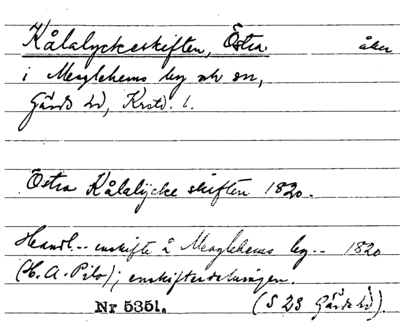 Kålalyckeskiften, Östra åker
i Maglehems by och sn,
Gärds hd, Krstd. l.
Östra Kålalycke skiften 1820.
Handl. - enskifte å Maglehems by - 1820
(H. A. Pihl); enskiftesdelningen.
Nr 5351. (S 23 Gärds hd).